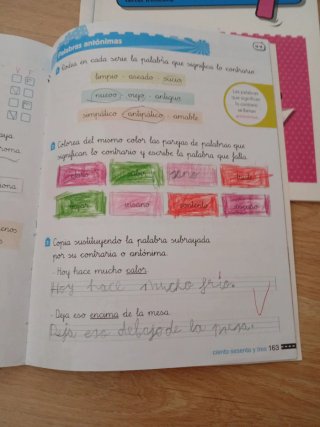 Palabras antónimas
Rodea en cada serie la palabra que significa lo contrario.
limpio - aseado - sucio
nuevo - viejo - antiguo
simpático - antipático - amable
Las palabras que significan lo contrario se llaman
Colorea del mismo color las parejas de palabras que
significan lo contrario y escribe la palabra que falta.
subir
sano
bajar
insano
contento
Copia sustituyendo la palabra subrayada
por su contraria o antónima.
- Hoy hace mucho calor.
Hoy hace mucho frío.
- Deja eso encima de la mesa.
Deja eso debajo de la mesa.
ciento sesenta y tres 163